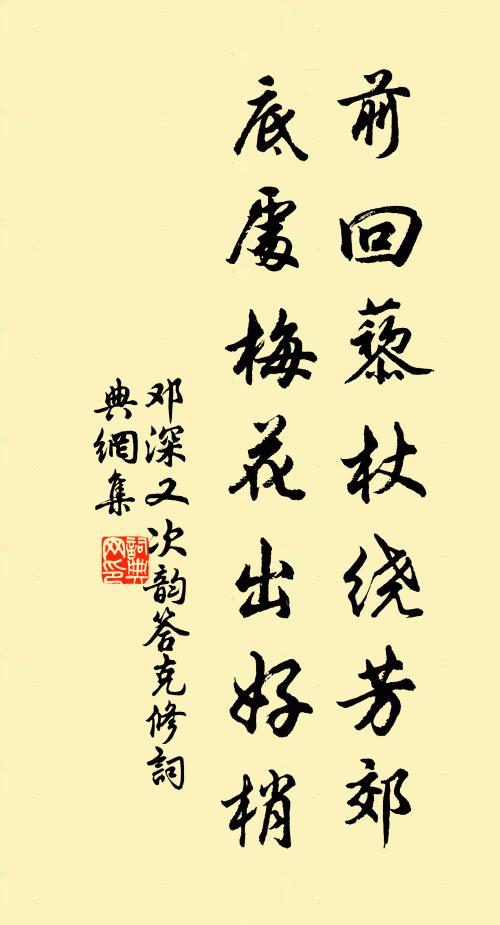 前回藜杖绕芳郊
底處梅花出好梢
邓深又次韵答克修詞
典網集
詞典網印